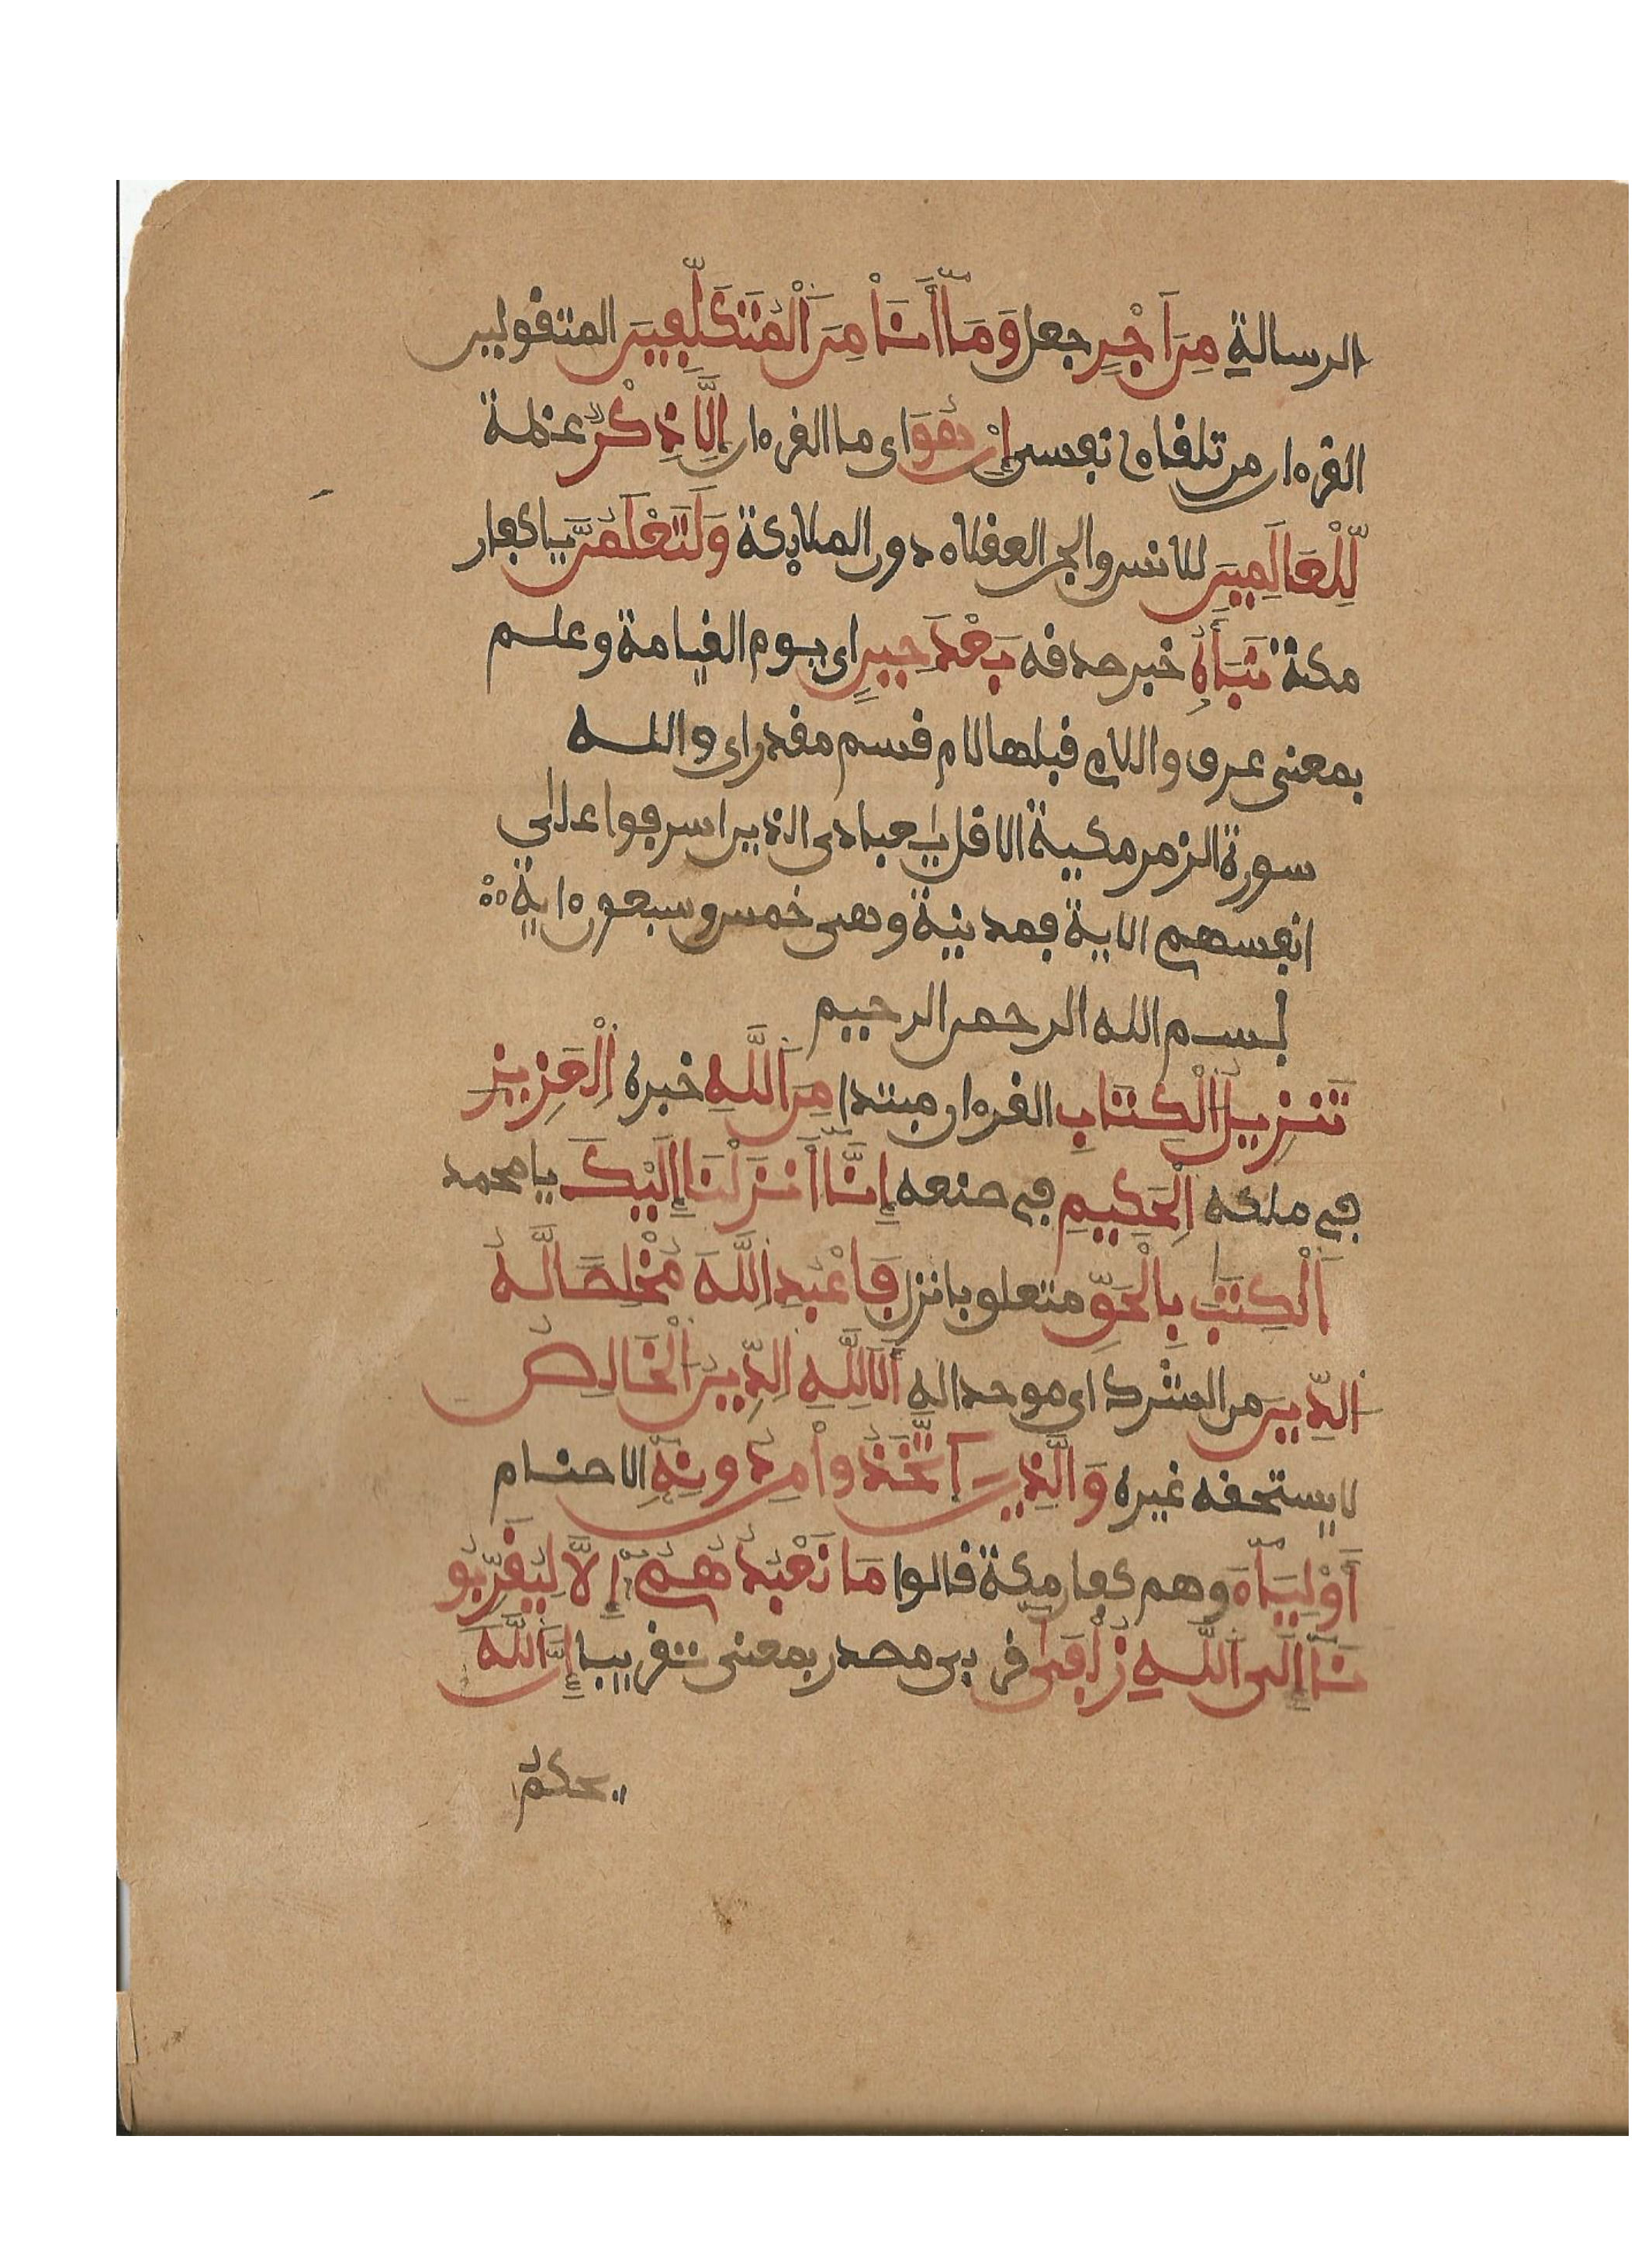 الرسالة مِنَ اَجْرٍ جعل وَمَا أَنَا مِنَ الْمُتَكَلِّفِينَ المتقولين
القرءان من تلقاء نفسى إِنْ هُوَ اى ما القرءان إِلَّا ذِكْرٌ عظة
لِّلْعَالَمِينَ للانس والجن العقلاء دون الملائكة وَلَتَعْلَمُنَّ يا كفار
مكة نَبَأَهُ خبر صدقه بَعْدَ حِينٍ اى يوم القيامة وعلم
بمعنى عرف واللام قبلها لام قسم مقدر اى والله
سورة الزمر مكية الا قل يا عبادى الذين اسرفوا على
انفسهم الاية فمدنية وهى خمس وسبعون ءاية
بسم الله الرحمن الرحيم
تَنزِيلُ الْكِتَابِ القرءان مبتدا مِنَ اللَّهِ خبره الْعَزِيزِ
في ملكه الْحَكِيمِ في صنعه إِنَّا أَنزَلْنَا إِلَيْكَ يا محمد
الْكِتَٰبَ بِالْحَقِّ متعلق بانزل فَاعْبُدِ اللَّهَ مُخْلِصًا لَّهُ
الدِّينَ من الشرك اى موحدا له أَلَا لِلَّهِ الدِّينُ الْخَالِصُ
لا يستحقه غيره وَالَّذِينَ اتَّخَذُوا مِن دُونِهِ الاصنام
أَوْلِيَاءَ وهم كفار مكة قالوا مَا نَعْبُدُهُمْ إِلَّا لِيُقَرِّبُو
نَا إِلَى اللَّهِ زُلْفَىٰ قربى مصدر بمعنى تقريبا إِنَّ اللَّهَ
يحكم